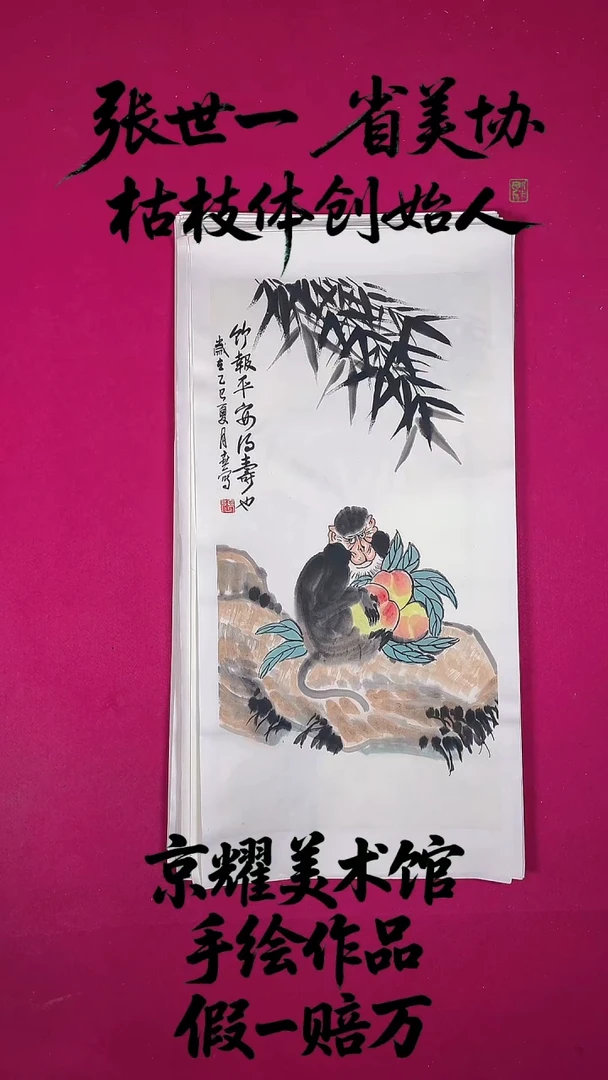 张世一 省美协
枯枝体创始人
竹報平安得壽也
歲在乙巳夏月
京耀美术馆
手绘作品
假一赔万